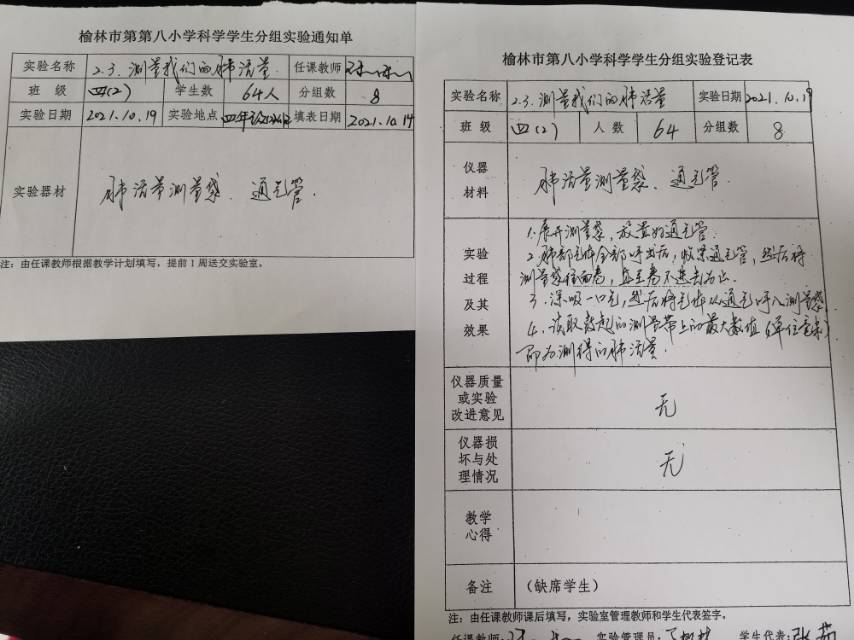 榆林市第第八小学科学学生分组实验通知单
实验名称 2.3.测量我们的肺活量 任课教师
班 级 四(2) 学生数 64人 分组数 8
实验日期 2021.10.19 实验地点 填表日期 2021.10.14
实验器材 肺活量测量袋、通气管.
注：由任课教师根据教学计划填写，提前1周送交实验室。
榆林市第八小学科学学生分组实验登记表
实验名称 2.3.测量我们的肺活量 实验日期 2021.10.19
班 级 四(2) 人 数 64 分组数 8
仪器
材料
肺活量测量袋、通气管.
实验
过程
及其
效果
1.展开测量袋，放置好通气管.
2.肺部气体全部呼出后，收紧通气管，然后将
测量袋往回卷，直至卷不进去为止.
3.深吸一口气，然后将气体从通气呼入测量袋
4.读取鼓起的测量带上的最大数值(单位毫米)
即为测得的肺活量.
仪器质量
或实验
改进意见
无
仪器损
坏与处
理情况
无
教学
心得
备注 (缺席学生)
注：由任课教师课后填写，实验室管理教师和学生代表签字。
任课教师: 实验管理员: 学生代表: